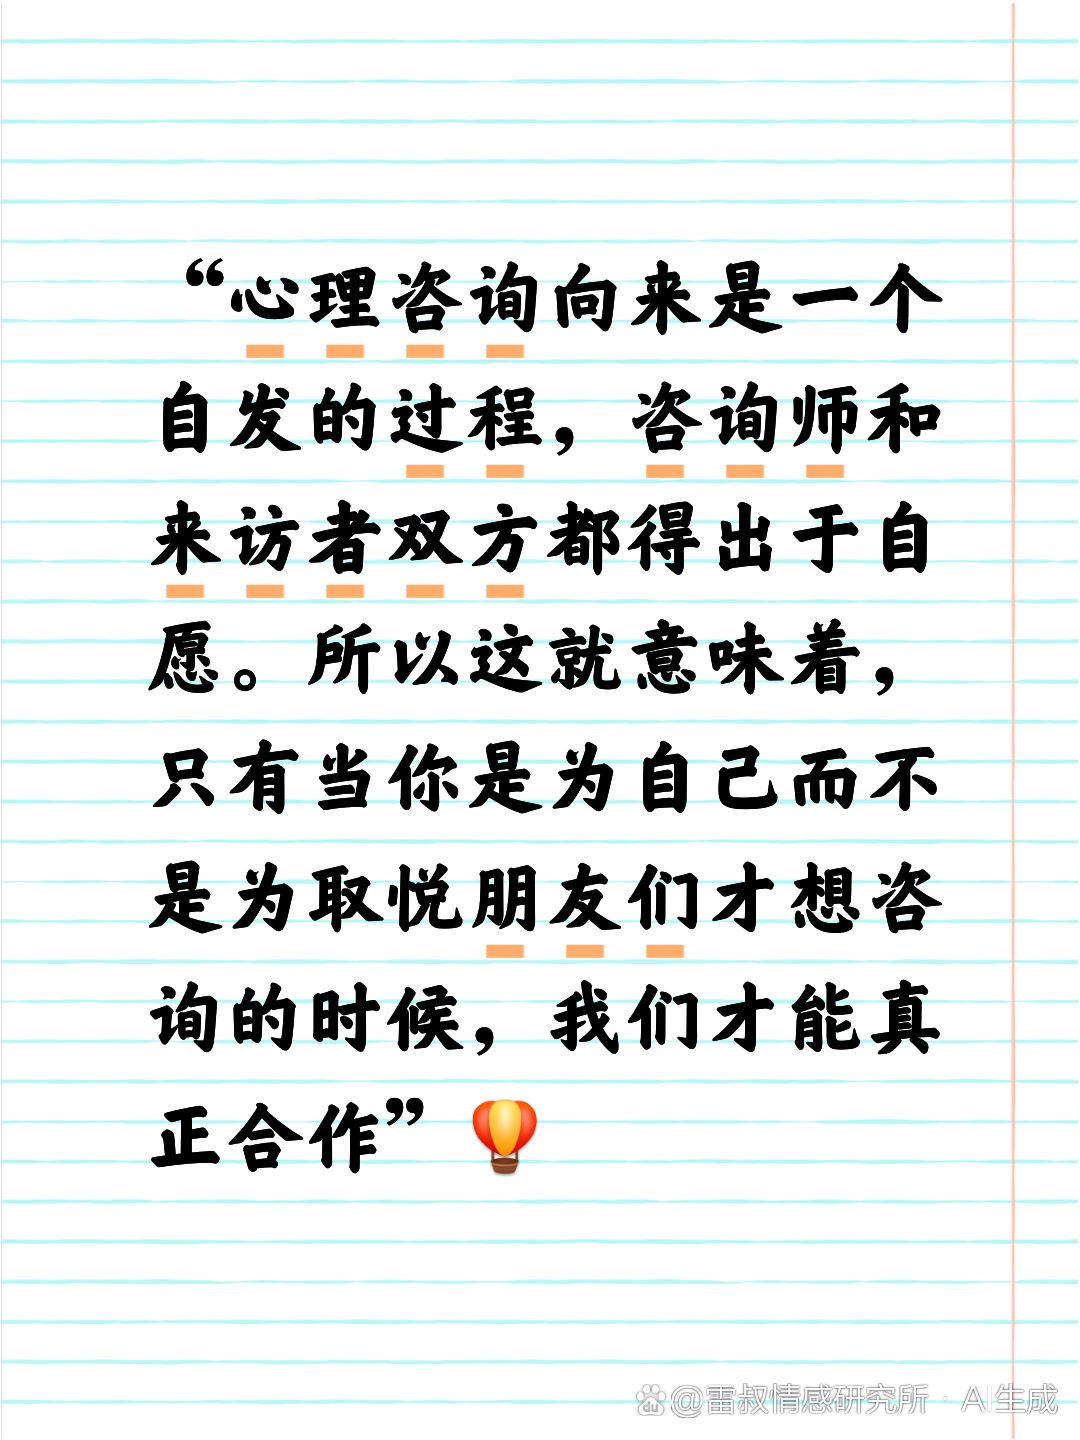 “心理咨询向来是一个
自发的过程，咨询师和
来访者双方都得出于自
愿。所以这就意味着，
只有当你是为自己而不
是为取悦朋友们才想咨
询的时候，我们才能真
正合作”
du
@雷叔情感研究所 · AI生成